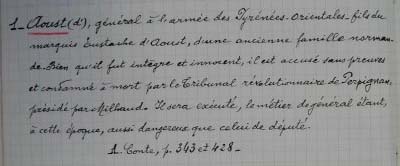 1_ Aoust (d'), général à l'armée des Pyrénées-Orientales_fils du
marquis Eustache d'Aoust, d'une ancienne famille norman-
de. Bien qu'il fut intègre et innocent, il est accusé sans preuves
et condamné à mort par le Tribunal révolutionnaire de Perpignan,
présidé par Milhaud. Il sera exécuté, le métier de général étant,
à cette époque, aussi dangereux que celui de député.
A. Conte, p. 343 et 428_